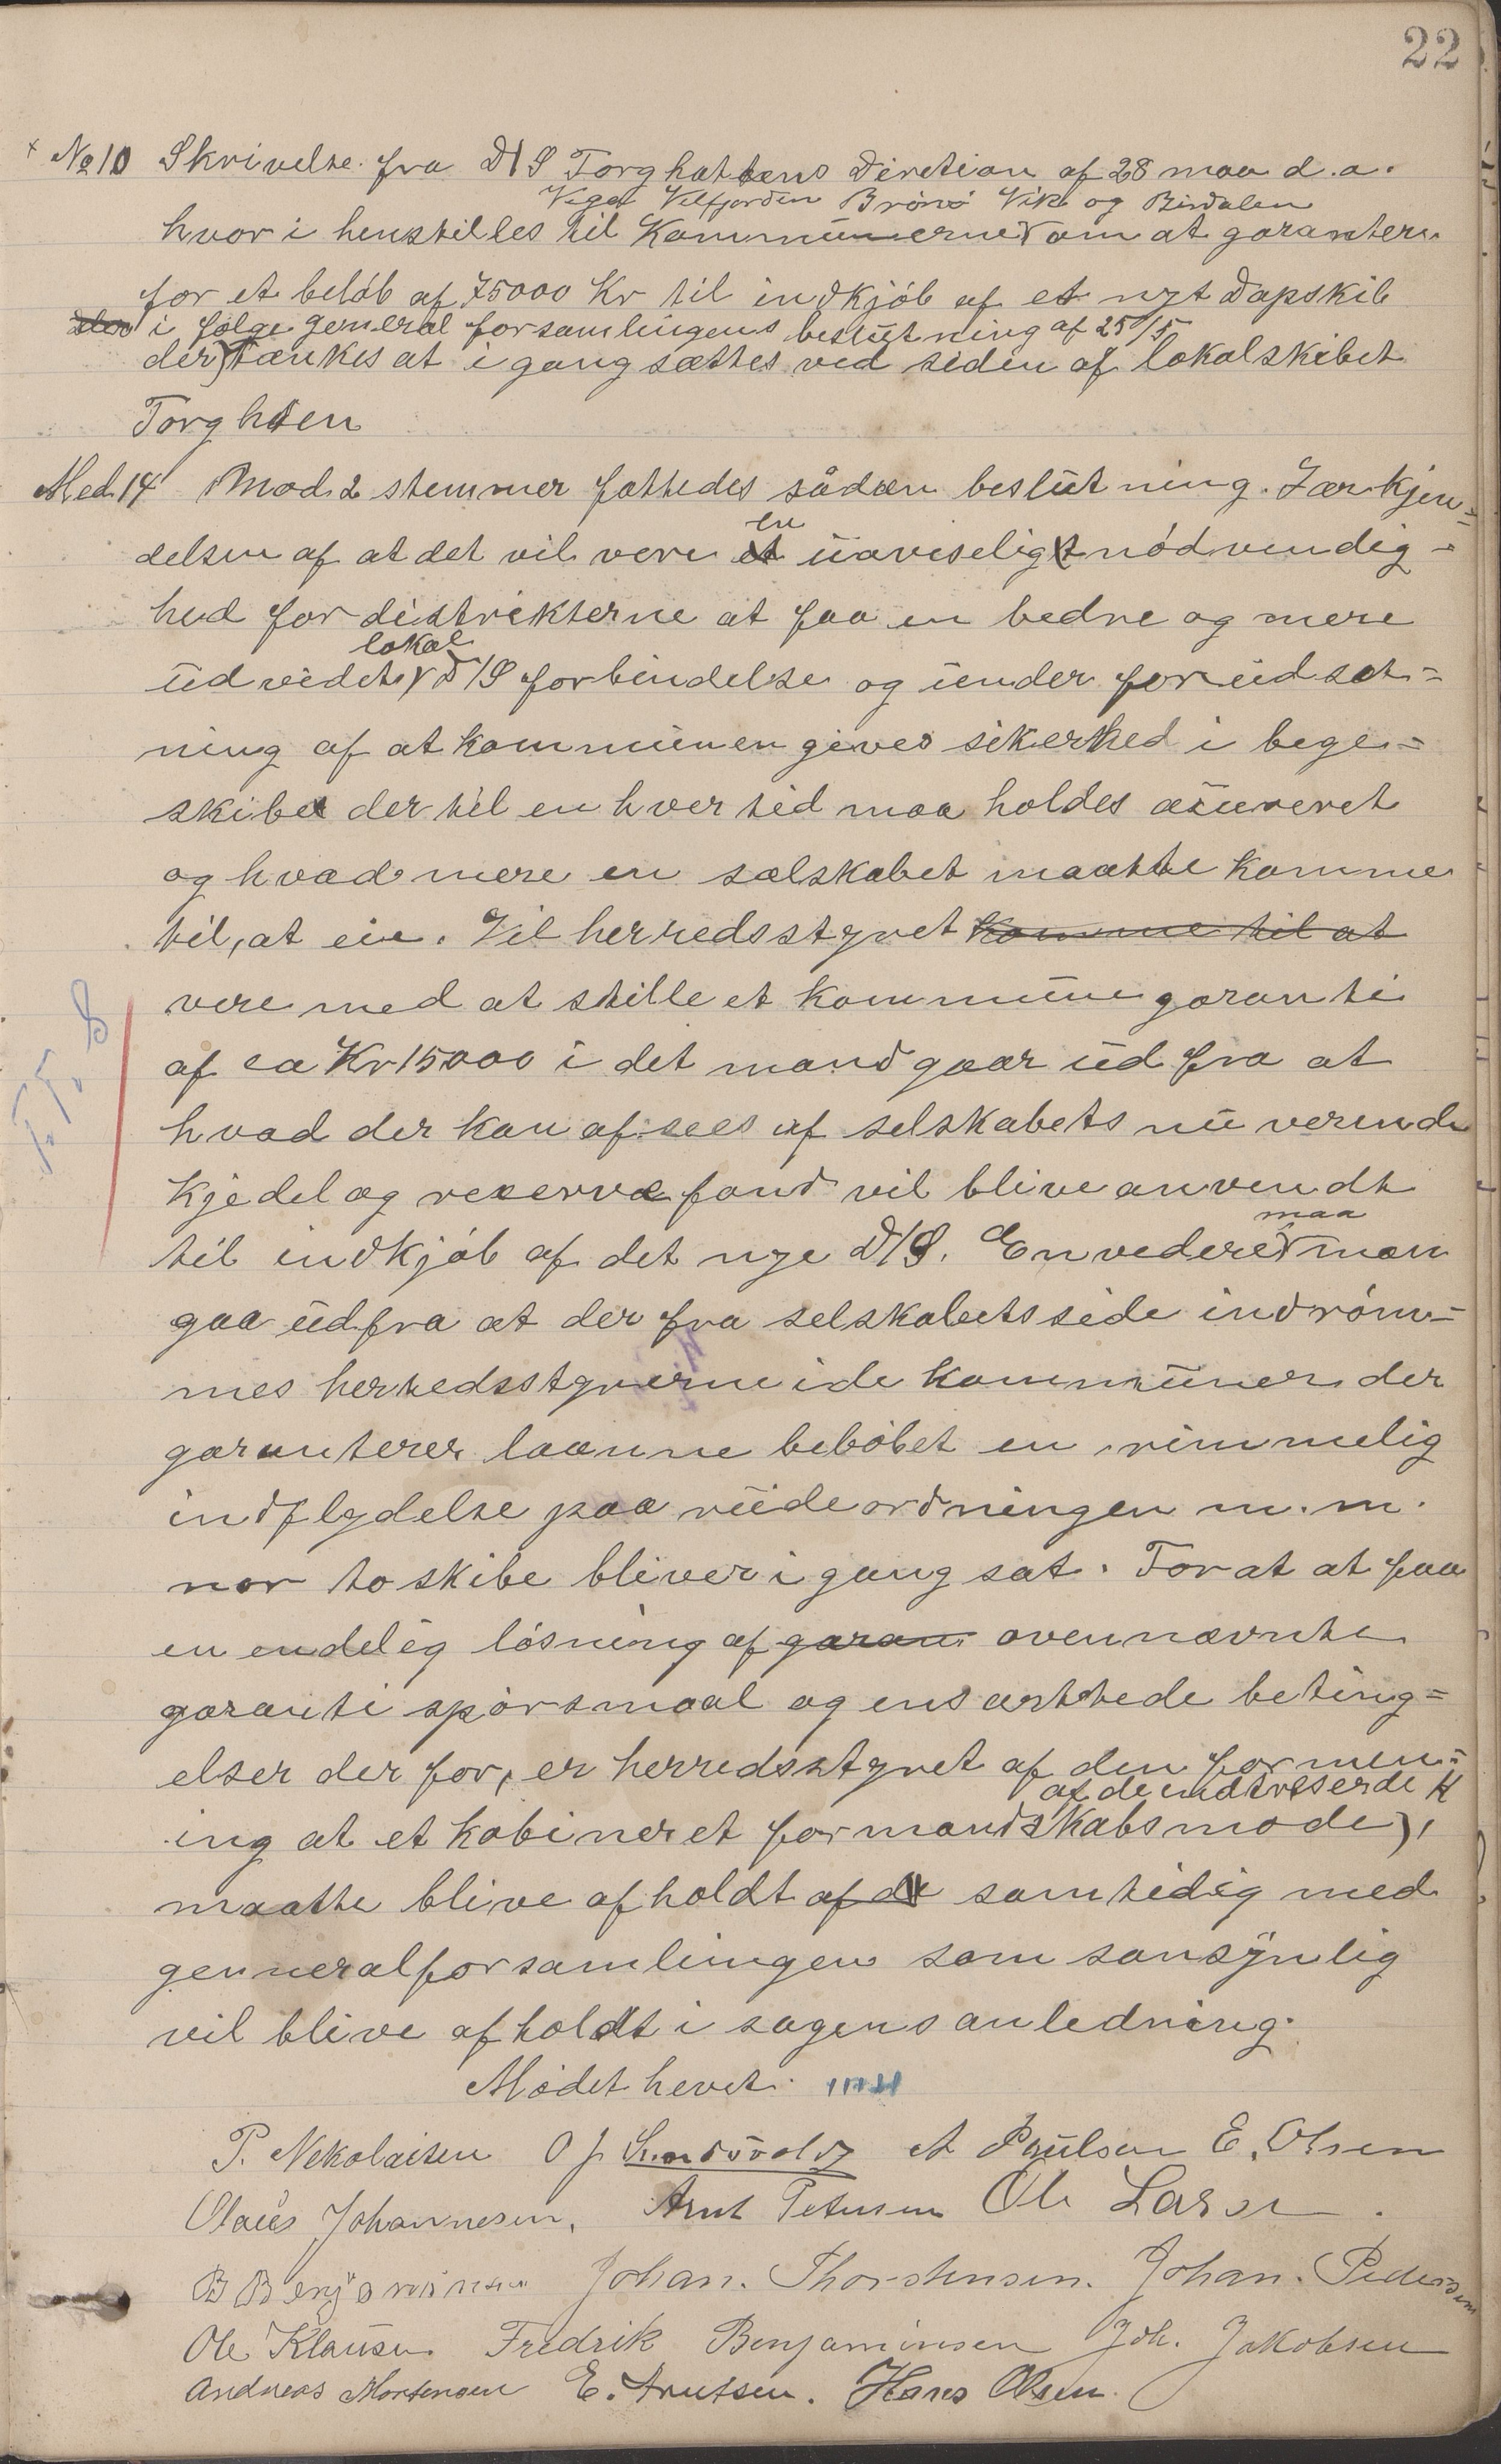 22
× No 10 Skrivelse fra D/S Torghattens Diretion af 28 maa d.a.
Vega Velfjorden Brönö Vik og Bindalen
hvor i henstilles til Kommunerne om at garantere
for et belöb af 75000 Kr til indkjöb af et nyt Dapskib
i følge general forsamlingens beslutning af 25/5
der tænkes at i gang sættes ved siden af lokalskibet
Torghten
Med 14 Mod 2 stemmer fattedes sådan beslutning. I ærkjen=
en
delsen af at det vil vere et uaviselig nödvendig=
hed for distrikterne at faa en bedre og mere
lokal
udvidet D/S forbindelse og under forudset=
ning af at kommunen gives sikerhed i bege=
skibe der til en hver tid maa holdes asureret
og hvad mere en selskabet maatte komme
til, at eie. Vil herredsstyret komme til at
vere med at stille et kommune garanti
af ca Kr 15000 i det mand gaar ud fra at
hvad der kan afsees af selskabets nu verende
kjedel og reserve fond vil blive anvendt
maa
til indkjöb af det nye D/S. En vedere man
gaa ud fra at der fra selskabets side indröm=
mes herredsstyrerne i de kommuner der
garanterer laanne belöbet en rimmelig
indflydelse paa ruideordningen m.m.
nor to skibe bliver i gang sat. For at at faa
en endelig lösning af garan ovennævnte
garanti spörsmaal og ensarttede beting=
elser der for, er herredsstyret af den formen=
af de indtreserde K
ing at et kobineret formandskabsmode,
maatte blive afholdt af d samtidig med
genneralforsamlingen som sansynlig
vil blive afholdt i sagens anledning.
Mödet hevet.
P. Nekolaisen O J A Paulsen E. Olsen
Olaus Johannesen, Arnt Petersen Ole Larsen.
B Benjaminsen Johan. Thorstensen. Johan. Pedersen
Ole Klausen Fredrik Benjaminsen Joh. Jakobsen
Andreas Mortensen E. Arntsen. Hans Olsen.